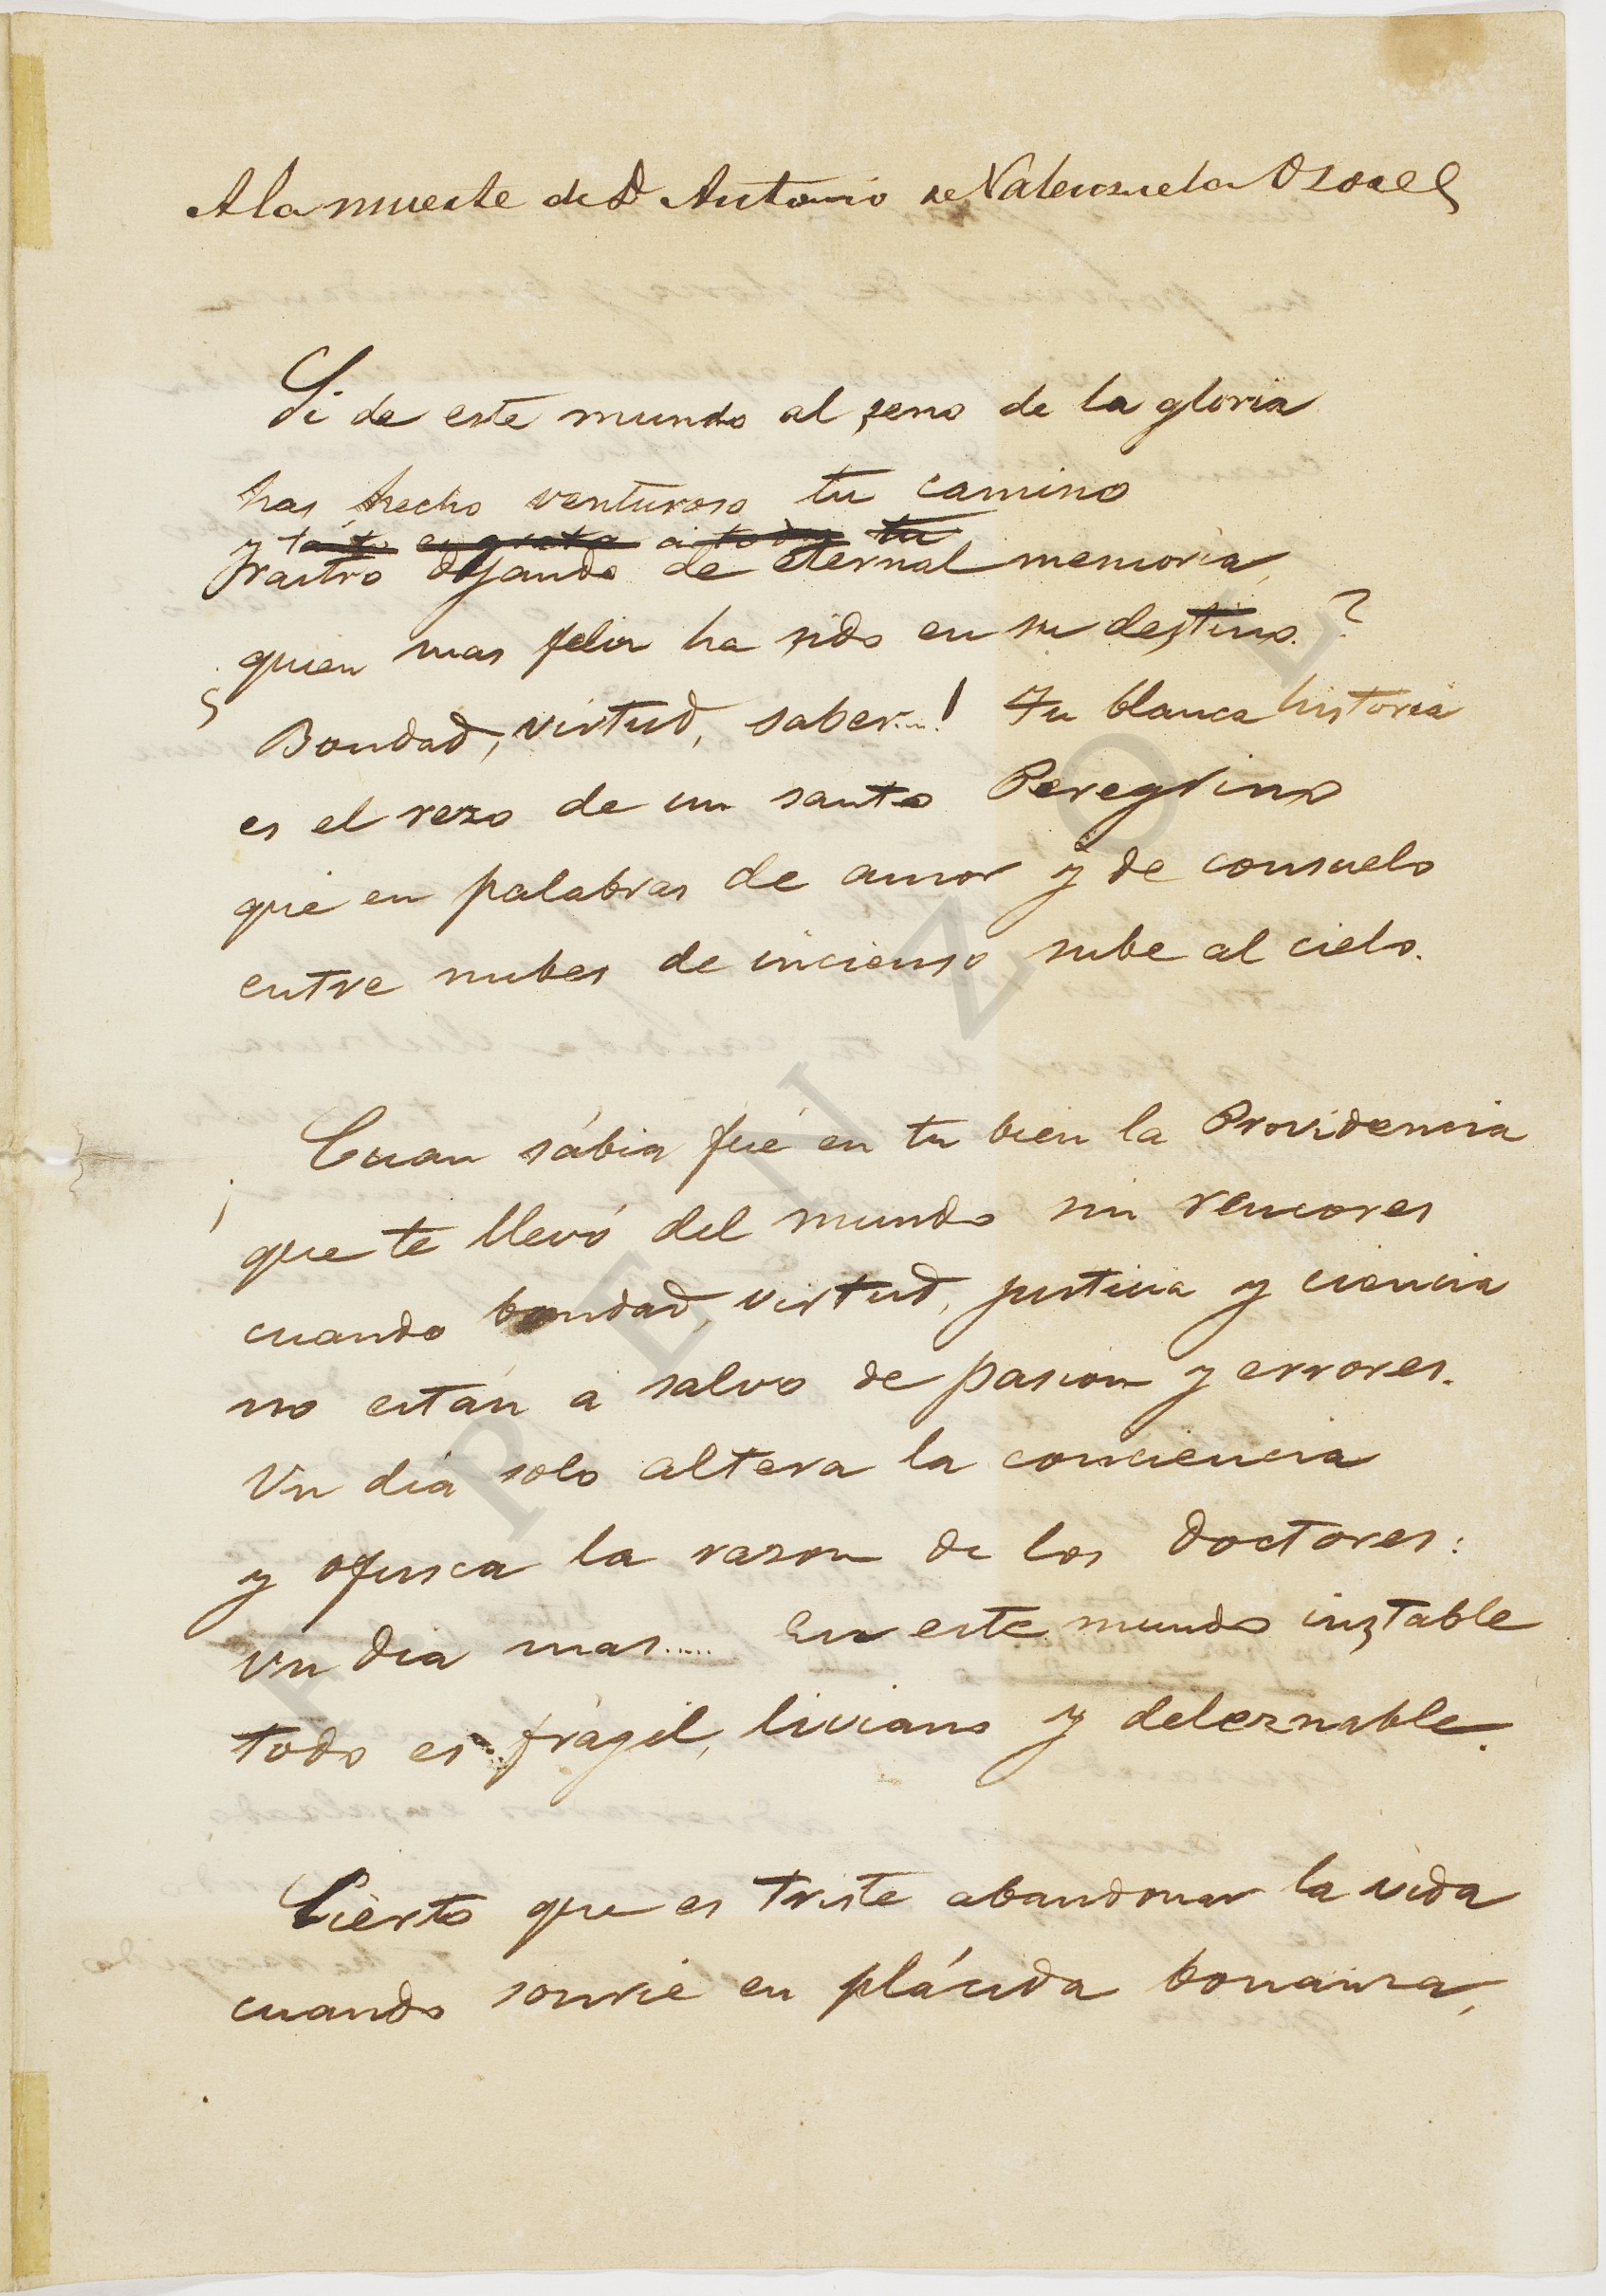 A la muerte de D Antonio de Valenzuela Ozores
Si de este mundo al seno de la gloria
has hecho venturoso tu camino
y
rastro dejando de eternal memoria,
quien mas feliz ha sido en su destino.?
¿
Bondad, virtud, saber...! Tu blanca historia
es el rezo de un santo Peregrino
que en palabras de amor y de consuelo
entre nubes de incienso sube al cielo.
Cuan sábia fué en tu bien la Providencia
¡
que te llevó del mundo sin rencores
cuando bondad, virtud, justicia y ciencia
no están a salvo de pasion y errores.
Un dia solo altera la conciencia
y ofusca la razon de los doctores:
un dia mas..... En este mundo instable
todo es frágil, liviano y deleznable.
Cierto que es triste abandonar la vida
cuando sonrie en plácida bonanza,
F. PENZOL